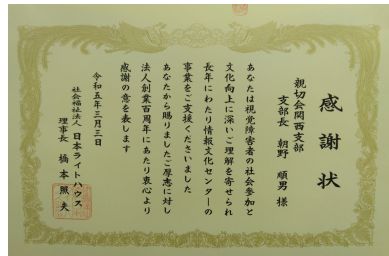 感謝状
親切会関西支部
支部長 朝野順男様
あなたは視覚障害者の社会参加と
文化向上に深いご理解を寄せられ
長年にわたり情報文化センターの
事業をご支援くださいました
あなたから賜りましたご厚志に対し
法人創業百周年にあたり衷心より
感謝の意を表します
令和五年三月三日
社会福祉法人 日本ライトハウス
理事長 橋本照夫